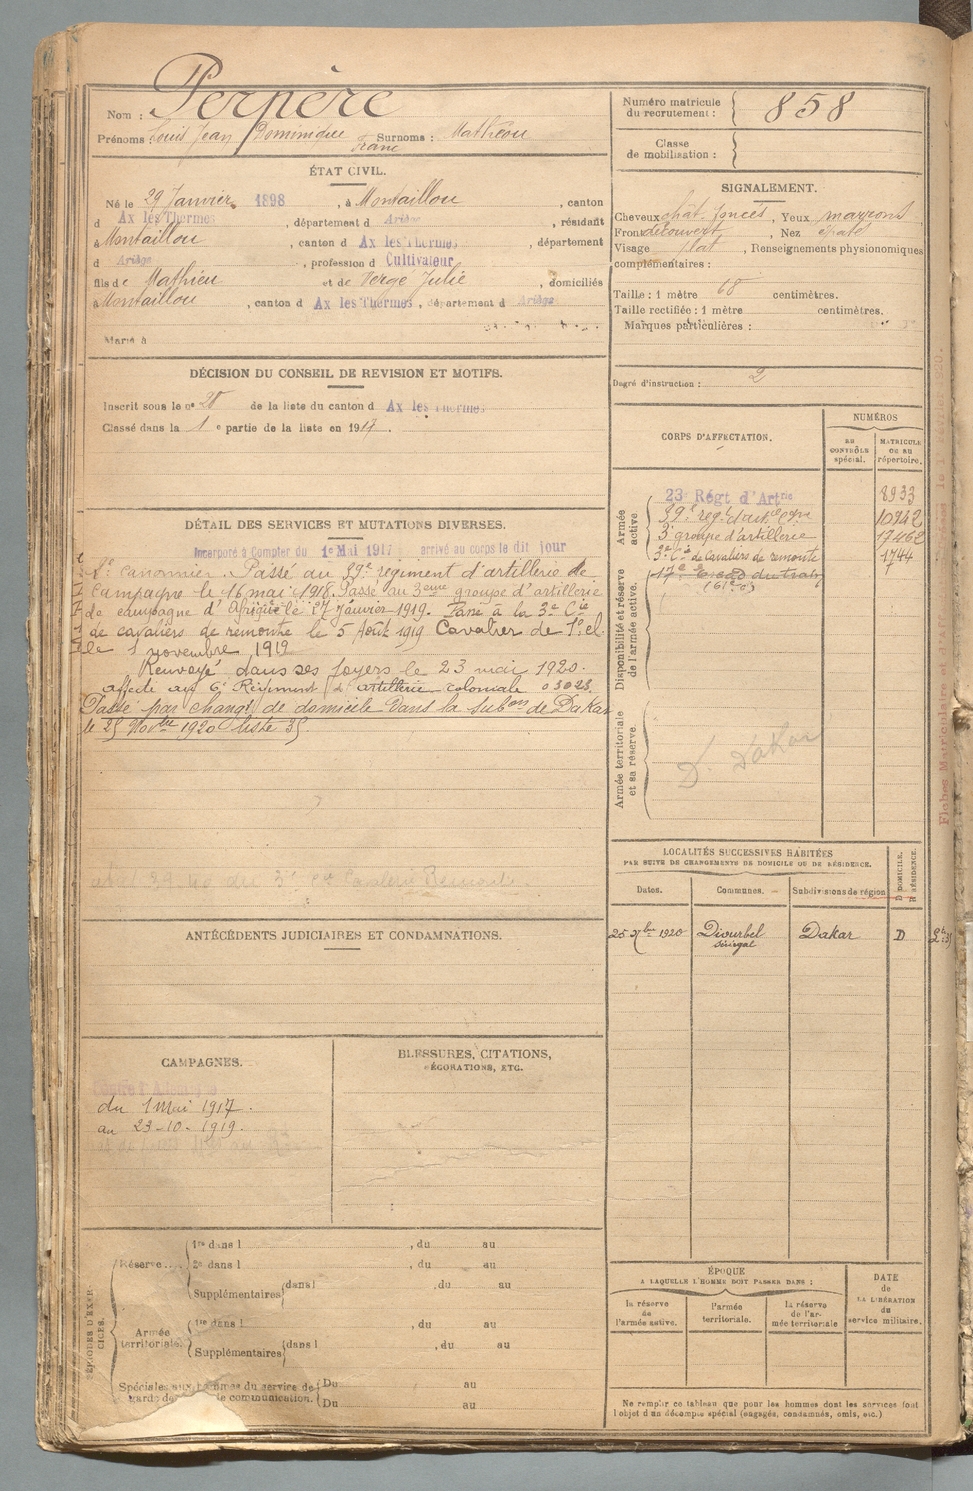 Nom : Perpère
Prénoms : Louis Jean Dominique Franc Surnoms : Mathieu
Numéro matricule du recrutement : 858
Classe de mobilisation :
ÉTAT CIVIL.
Né le 29 Janvier 1898, à Montaillou, canton
d Ax les Thermes, département d Ariège, résidant
à Montaillou, canton d Ax les Thermes, département
d Ariège, profession d Cultivateur
fils de Mathieu et de Vergé Julie, domiciliés
à Montaillou, canton d Ax les Thermes, département d Ariège
Marié à
SIGNALEMENT.
Cheveux chât. foncés, Yeux marrons
Front découvert, Nez épaté
Visage plat, Renseignements physionomiques
complémentaires :
Taille : 1 mètre 68 centimètres.
Taille rectifiée : 1 mètre centimètres.
Marques particulières :
Degré d'instruction : 2
DÉCISION DU CONSEIL DE REVISION ET MOTIFS.
Inscrit sous le n° de la liste du canton d Ax les Thermes
Classé dans la 1e partie de la liste en 1917.
DÉTAIL DES SERVICES ET MUTATIONS DIVERSES.
Incorporé à compter du 1e Mai 1917 arrivé au corps le dit jour
canonnier. Passé au 39e régiment d'artillerie de
campagne le 16 mai 1918. Passé au 3eme groupe d'artillerie
de campagne d'Afrique le 17 Janvier 1919. Passé à la 3e Cie
de cavaliers de remonte le 5 Août 1919 Cavalier de 1e cl.
le 1 novembre 1919
Renvoyé dans ses foyers le 23 mai 1920.
affecté au 6e Régiment d'artillerie coloniale 03023.
Passé par changt de domicile dans la subon de Dakar
le 25 Novbre 1920 liste 35
3e Cie Cavaliers Remonte
CORPS D'AFFECTATION.
NUMÉROS
AU CONTRÔLE spécial.
MATRICULE OU AU répertoire.
Armée active
Disponibilité et réserve de l'armée active.
Armée territoriale et sa réserve.
23e Régt d'Artrie 8933
39e regt d'artrie Cgne 10942
3e groupe d'artillerie 17462
3e Cie de Cavaliers de remonte 1744
D. Dakar
LOCALITÉS SUCCESSIVES HABITÉES
PAR SUITE DE CHANGEMENTS DE DOMICILE OU DE RÉSIDENCE.
Dates. Communes. Subdivisions de région D DOMICILE. R RÉSIDENCE.
25 9bre 1920 Diourbel Sénégal Dakar D
ANTÉCÉDENTS JUDICIAIRES ET CONDAMNATIONS.
CAMPAGNES.
Contre l'Allemagne
du 1 Mai 1917.
au 23-10-1919.
BLESSURES, CITATIONS,
DÉCORATIONS, ETC.
PÉRIODES D'EXERCICES.
Réserve....
1re dans l , du au
2e dans l , du au
Supplémentaires dans l , du au
Armée territoriale.
1re dans l , du au
Supplémentaires dans l , du au
Spéciales aux hommes du service de Du au
garde de communication. Du au
ÉPOQUE
A LAQUELLE L'HOMME DOIT PASSER DANS :
la réserve de l'armée active.
l'armée territoriale.
la réserve de l'armée territoriale
DATE de LA LIBÉRATION du service militaire.
Ne remplir ce tableau que pour les hommes dont les services font
l'objet d'un décompte spécial (engagés, condamnés, omis, etc.)